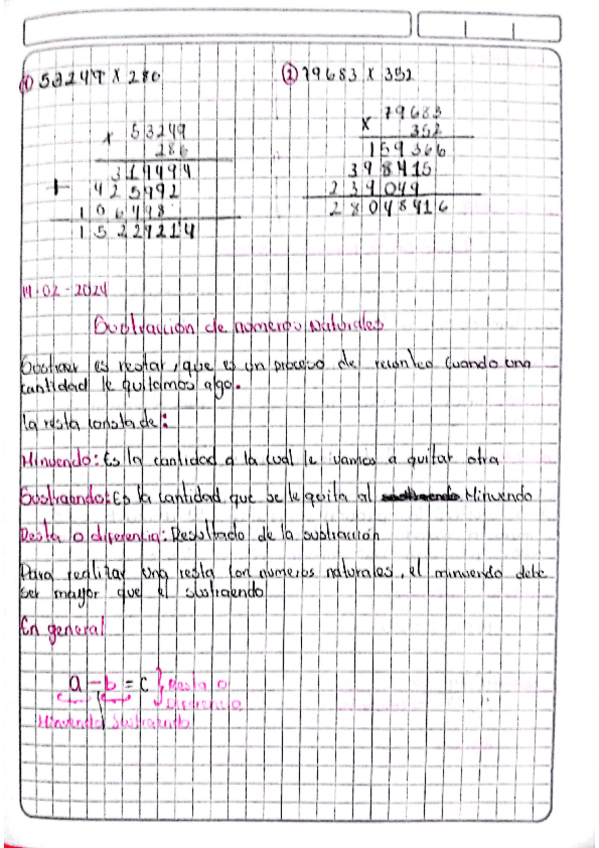 1) 53249 x 286
2) 79683 x 352
x 53249
286
319494
+ 425992
106498
15229214
x 79683
352
159366
398415
239049
28048416
14-02-2024
Sustracción de números naturales
Sustraer es restar, que es un proceso de reconteo cuando una
cantidad le quitamos algo.
la resta consta de:
Minuendo: Es la cantidad a la cual le vamos a quitar otra
Sustraendo: Es la cantidad que se le quita al Minuendo
Resta o diferencia: Resultado de la sustracción
Para realizar una resta con números naturales, el minuendo debe
ser mayor que el sustraendo
En general
a - b = c } Resta o
Diferencia
Minuendo Sustraendo